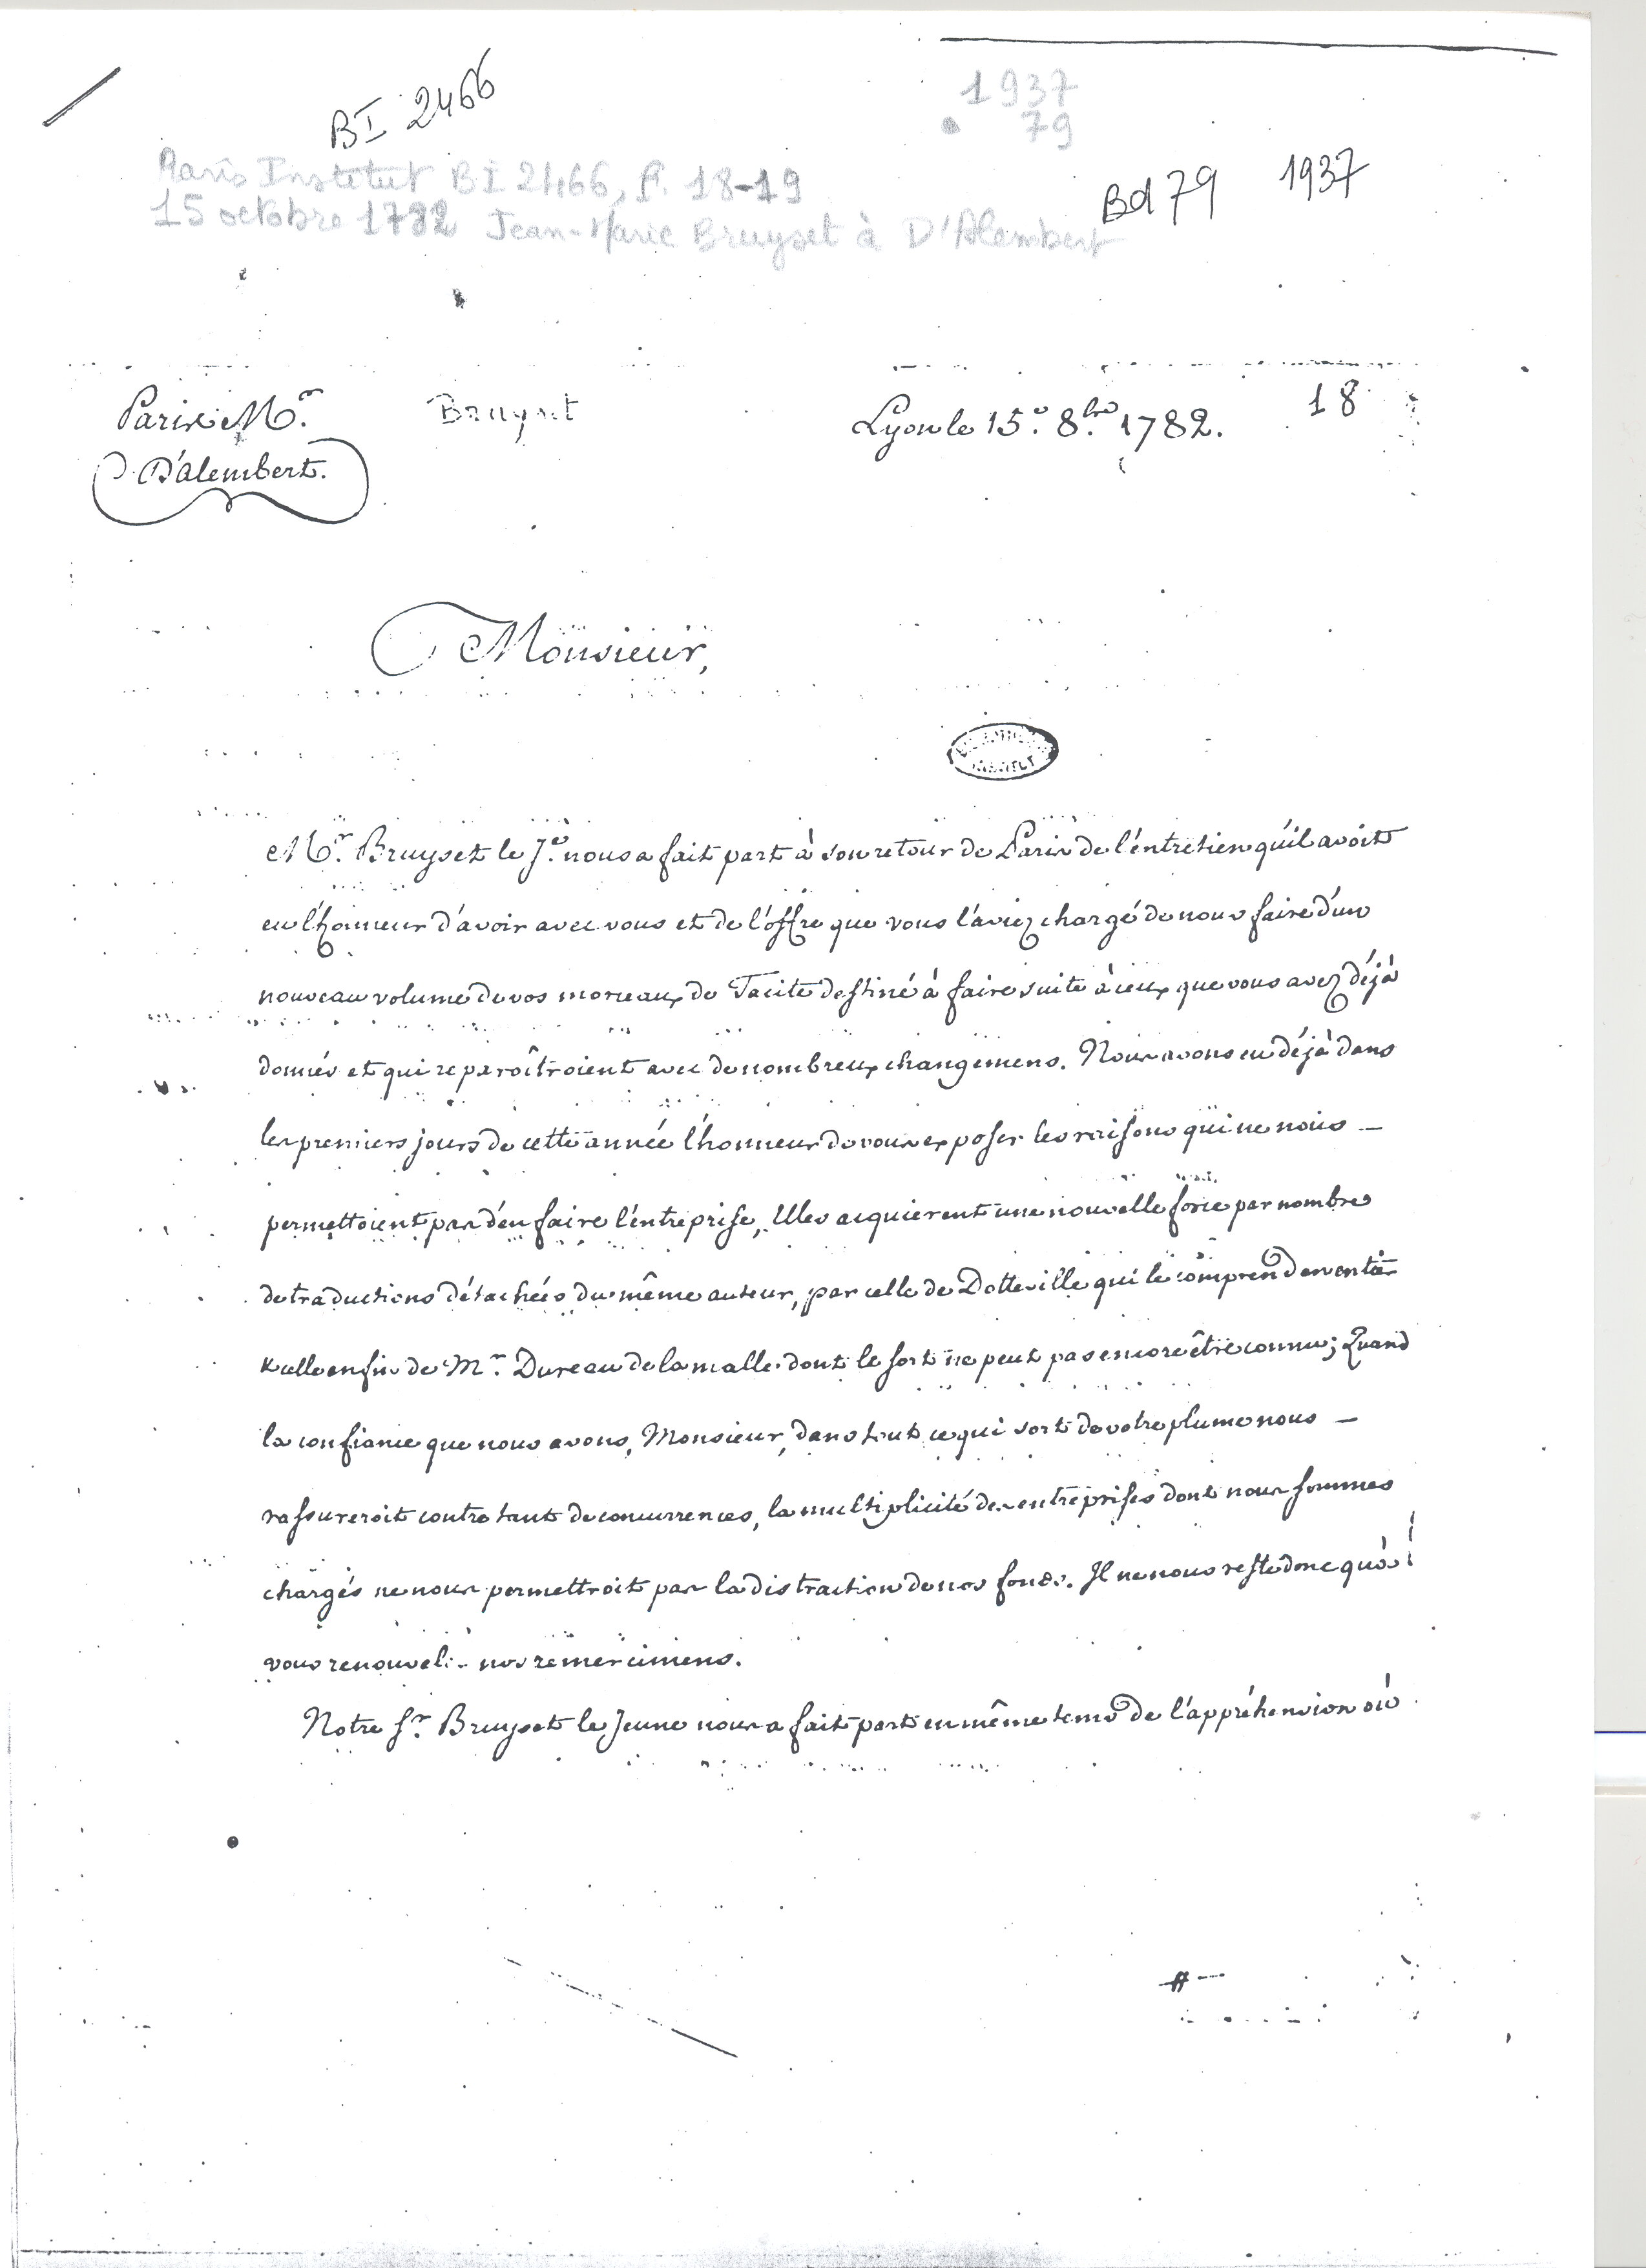 BI 2466
1937
79
Paris Institut BI 2466, f. 18-19
Bd 79 1937
15 octobre 1782 Jean-Marie Bruyset à D'Alembert
Paris Mr.
Bruyset
Lyon le 15e. 8bre 1782.
18
D'alembert.
Monsieur,
Mr. Bruyset le Je. nous a fait part à son retour de Paris de l'éntretien qu'il avoit
eu l'honneur d'avoir avec vous et de l'offre que vous l'aviez chargé de nous faire d'un
nouveau volume de vos morceaux de Tacite destiné à faire suite à ceux que vous avez déjà
donnés et qui reparoîtroient avec de nombreux changemens. Nous avons eu déjà dans
les premiers jours de cette année l'honneur de vous exposer les raisons qui ne nous
permettoient pas d'en faire l'entreprise, Elles acquierent une nouvelle force par nombre
de traductions détachées du même auteur, par celle de Dotteville qui le comprend en entier
& celle enfin de Mr. Dureau de la malle dont le sort ne peut pas encore être connu; Quand
la confiance que nous avons, Monsieur, dans tout ce qui sort de votre plume nous
rassureroit contre tant de concurrences, la multiplicité des entreprises dont nous sommes
chargés ne nous permettroit pas la distraction de nos fonds. Il ne nous reste donc qu'à
vous renouveler nos remercimens.
Notre Sr. Bruyset le Jeune nous a fait part en même tems de l'appréhension où